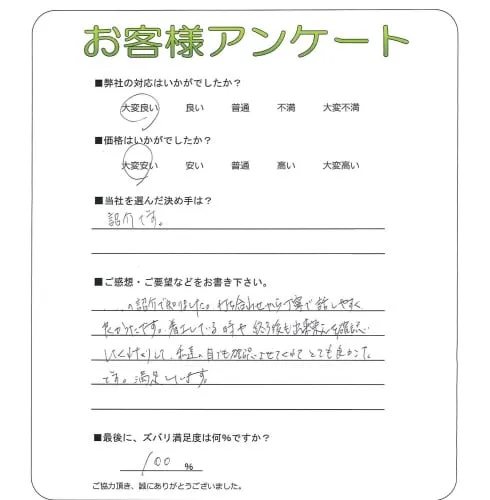 お客様アンケート
■弊社の対応はいかがでしたか?
大変良い 良い 普通 不満 大変不満
■価格はいかがでしたか?
大変安い 安い 普通 高い 大変高い
■当社を選んだ決め手は?
紹介です。
■ご感想・ご要望などをお書き下さい。
の紹介で知りました。打ち合わせから丁寧で話しやすく
良かったです。着工している時や終了後も出来栄えを確認
してくれたりして、私達の目でも確認させてくれてとても良かった
です。満足しています。
■最後に、ズバリ満足度は何%ですか?
100 %
ご協力頂き、誠にありがとうございました。